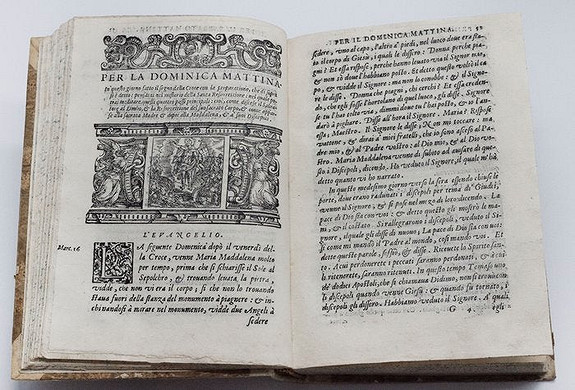 PER LA DOMINICA MATTINA.
In questo giorno fatto il segno della Croce con la preparatione, che di sopra
si è detto; prendeti nel misterio della Santa Resurrettione
meditare questi passi principali: come, discese il Signore
al Limbo, & la Resurrettione del suo sacrato Corpo:
se alla sua
Madre & dopo alla Maddalena, & a suoi Discepoli.
L'EVANGELIO.
Marc. 16
LA seguente Domenica dopò il venerdì del-
la Croce, venne Maria Maddalena molto
per tempo, prima che si schiarisse il Sole al
Sepolchro, & trouando leuata la pietra,
vidde, che non vi era il corpo; si che non lo trouando
staua fuori della stanza del monumento à piagnere: & in-
chinandosi à mirare nel monumento, vidde due Angeli à
sedere
PER IL DOMINICA MATTINA.
sedere, vno al capo, l'altro a' piedi, nel luoco doue era sta-
to il corpo di Giesù, i quali le dissero: Donna perche pia-
gni? Et essa rispose, perche hanno leuato via il mio Signore,
& non sò doue l'habbiano posto. Et detto questo voltò si
& vidde il Signore: ma non lo conobbe: & il Signore
le disse. Donna perche piagni, chi cerchi? Et essa creden-
do, che egli fosse l'hortolano di quel luoco, gli disse. Signore
se tu l'hai tolto via, dimmi doue l'hai posto: & io l'an-
darò à pregliare. Disse all'hora il Signore. Maria? Rispose
essa; Maestro. Il Signore le disse, Non mi toccare: ma
, & dirai a' miei fratelli, che io sono asceso al Pa-
dre mio, & al Padre vostro: al Dio mio, & al Dio vo-
stro. Maria Maddalena venne di subito ad auisare di que-
sto i Discepoli, dicendo. Hò veduto il Signore, il quale m'hà
detto quanto vi ho narrato.
In questo medesimo giorno verso la sera essendo chiuse le
porte, doue erano radunati i discepoli per tema de' Giudei,
venne il Signore, & si pose nel mezo di loro dicendo. La
pace di Dio sia con voi: & detto questo gli mostrò le ma-
ni, & il costato. Si rallegrarono i discepoli, veduto il Si-
gnore, il quale gli disse di nuouo. La pace di Dio sia con voi:
Si come mi mandò il Padre al mondo, così mando voi. Et
dette queste parole, soffiò, & disse. Riceuete lo Spirito santo.
A cui perdonerete i peccati saranno perdonati, & à chi
li ritenerete, saranno ritenuti. In questo tempo Tomaso vno
de' dodici Apostoli, che si chiamaua Didimo, non si trouò con
i discepoli quando venne Giesù: & quando fu tornato, i
discepoli gli dissero. Habbiamo veduto il Signore. A' quali
G 4 egli